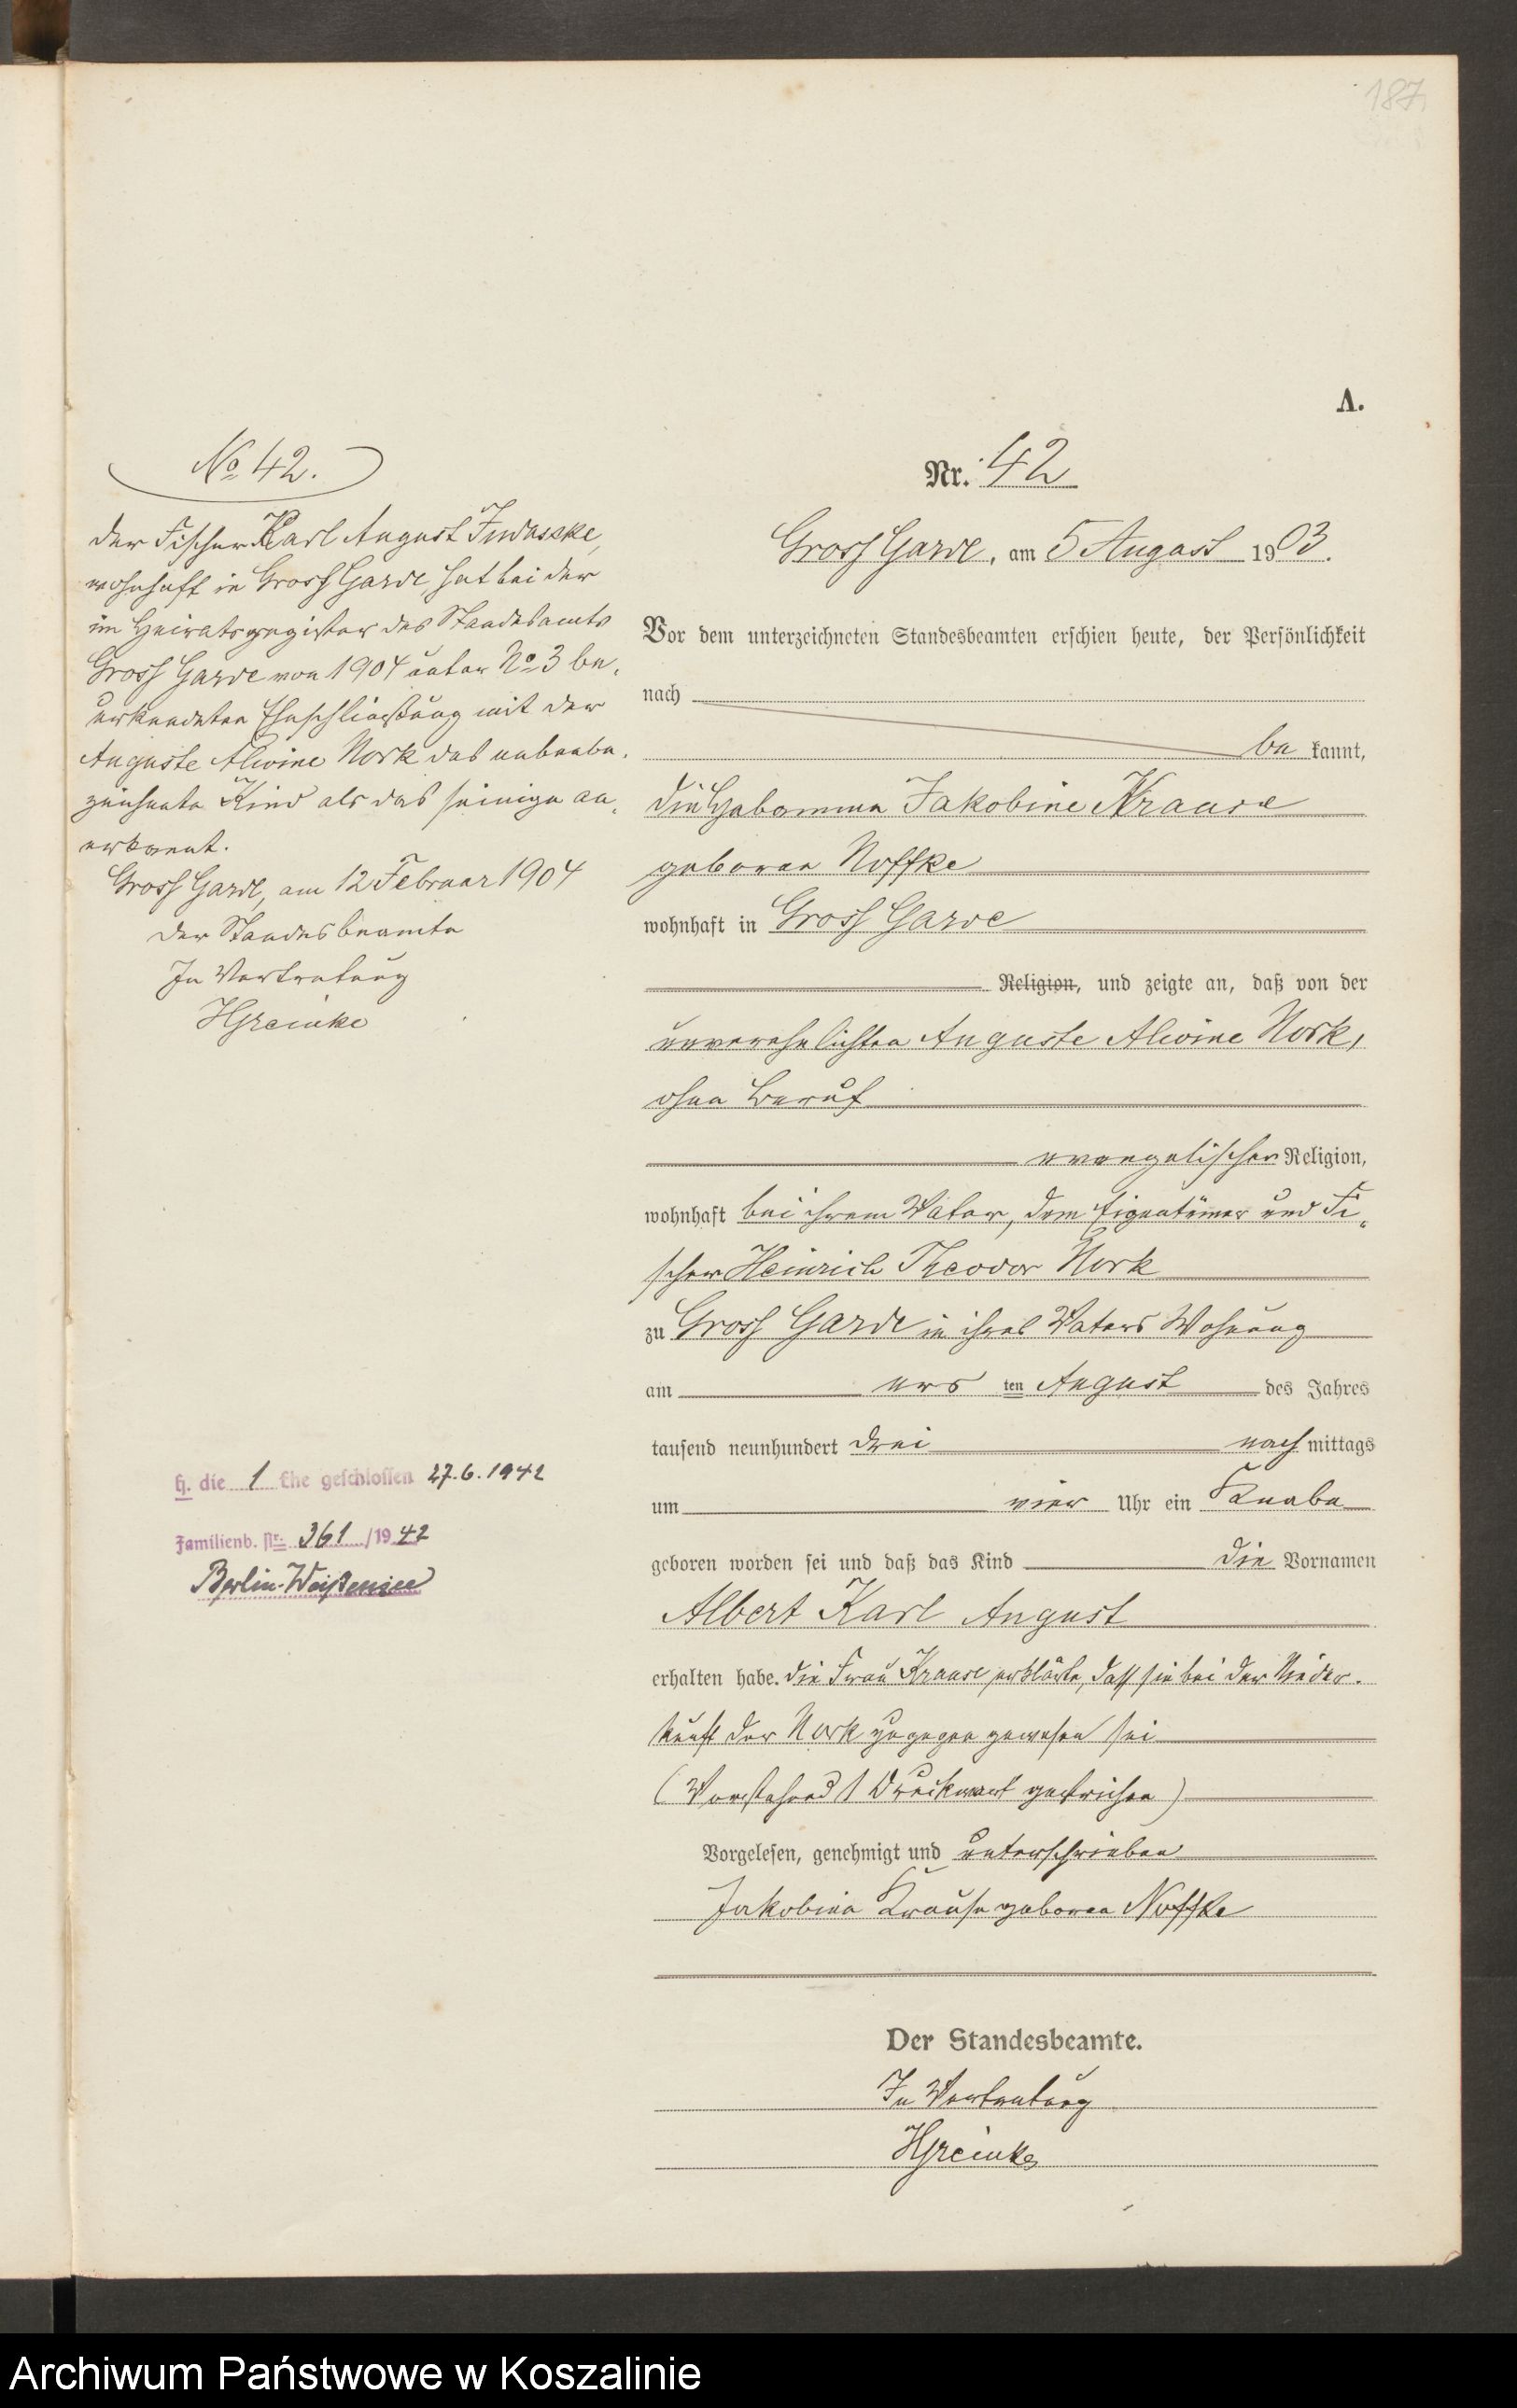 187
A.
No 42.
Der Fischer Karl August Judaschke,
wohnhaft in Gross Garde, hat bei der
im Heiratsregister des Standesamts
Gross Garde von 1904 unter No 3 be-
urkundeten Eheschließung mit der
Auguste Alwine Nork das nebenbe-
zeichnete Kind als das seinige an-
erkannt.
Gross Garde, am 12 Februar 1904
Der Standesbeamte
In Vertretung
H. die 1 Ehe geschlossen 27.6.1942
Familienb. Nr. 361/1942
Berlin-Weißensee
Nr. 42
Gross Garde, am 5 August 1903.
Vor dem unterzeichneten Standesbeamten erschien heute, der Persönlichkeit
nach
be kannt,
die Hebamme Jakobine Krause
geborene Noffke
wohnhaft in Gross Garde
Religion, und zeigte an, daß von der
unverehelichten Auguste Alwine Nork,
ohne Beruf
evangelischer Religion,
wohnhaft bei ihrem Vater, dem Eigentümer und Fi-
scher Heinrich Theodor Nork
zu Gross Garde in ihres Vaters Wohnung
am ers ten August des Jahres
tausend neunhundert drei nach mittags
um vier Uhr ein Knabe
geboren worden sei und daß das Kind die Vornamen
Albert Karl August
erhalten habe. Die Frau Krause erklärte, daß sie bei der Nieder-
kunft der Nork zugegen gewesen sei
(Vorstehend 1 Druckwort gestrichen)
Vorgelesen, genehmigt und unterschrieben
Jakobine Krause geborene Noffke
Der Standesbeamte.
In Vertretung
Archiwum Państwowe w Koszalinie